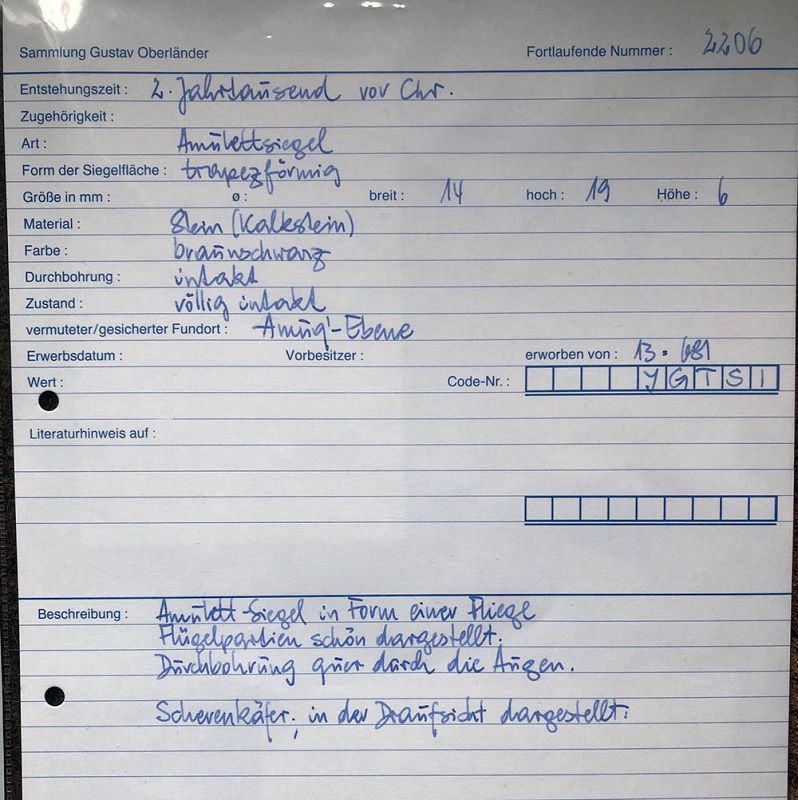 Sammlung Gustav Oberländer Fortlaufende Nummer : 2206
Entstehungszeit : 2. Jahrtausend vor Chr.
Zugehörigkeit :
Art : Amulettsiegel
Form der Siegelfläche : trapezförmig
Größe in mm : ø : breit : 14 hoch : 19 Höhe : 6
Material : Stein (Kalkstein)
Farbe : braunschwarz
Durchbohrung : intakt
Zustand : völlig intakt
vermuteter/gesicherter Fundort : Amuq'-Ebene
Erwerbsdatum : Vorbesitzer : erworben von : 13.
Wert : Code-Nr. : Y G T S I
Literaturhinweis auf :
Beschreibung : Amulett-Siegel in Form einer Fliege
Flügelpartien schön dargestellt.
Durchbohrung quer durch die Augen.
Scherenkäfer, in der Draufsicht dargestellt.